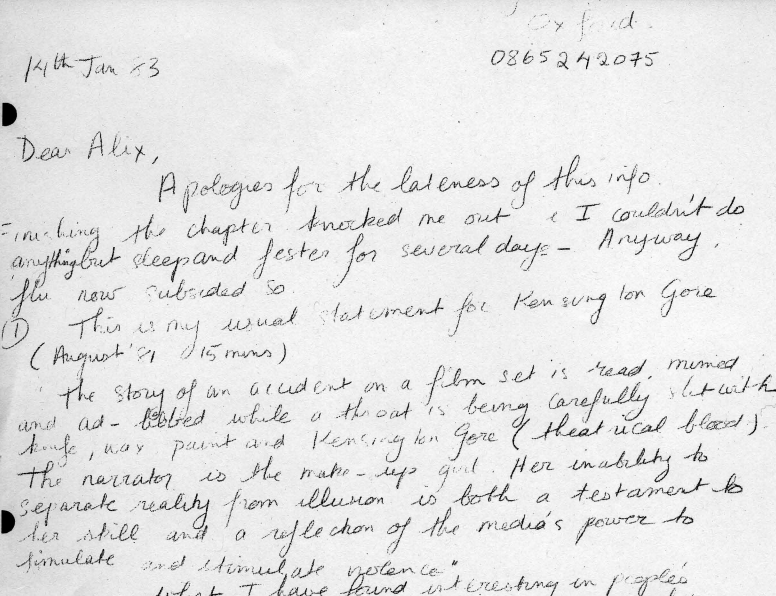 Oxford.
0865242075
14th Jan 83
Dear Alix,
Apologies for the lateness of this info.
Finishing the chapter knocked me out & I couldn't do
anything but sleep and fester for several days - Anyway,
flu now subsided so
① This is my usual statement for Kensington Gore
(August '81 15 mins)
"The story of an accident on a film set is read, mimed
and ad-libbed while a throat is being carefully slit with
knife, wax paint and Kensington Gore (theatrical blood).
The narrator is the make-up girl. Her inability to
separate reality from illusion is both a testament to
her skill and a reflection of the media's power to
simulate and stimulate violence"
What I have found interesting in people's